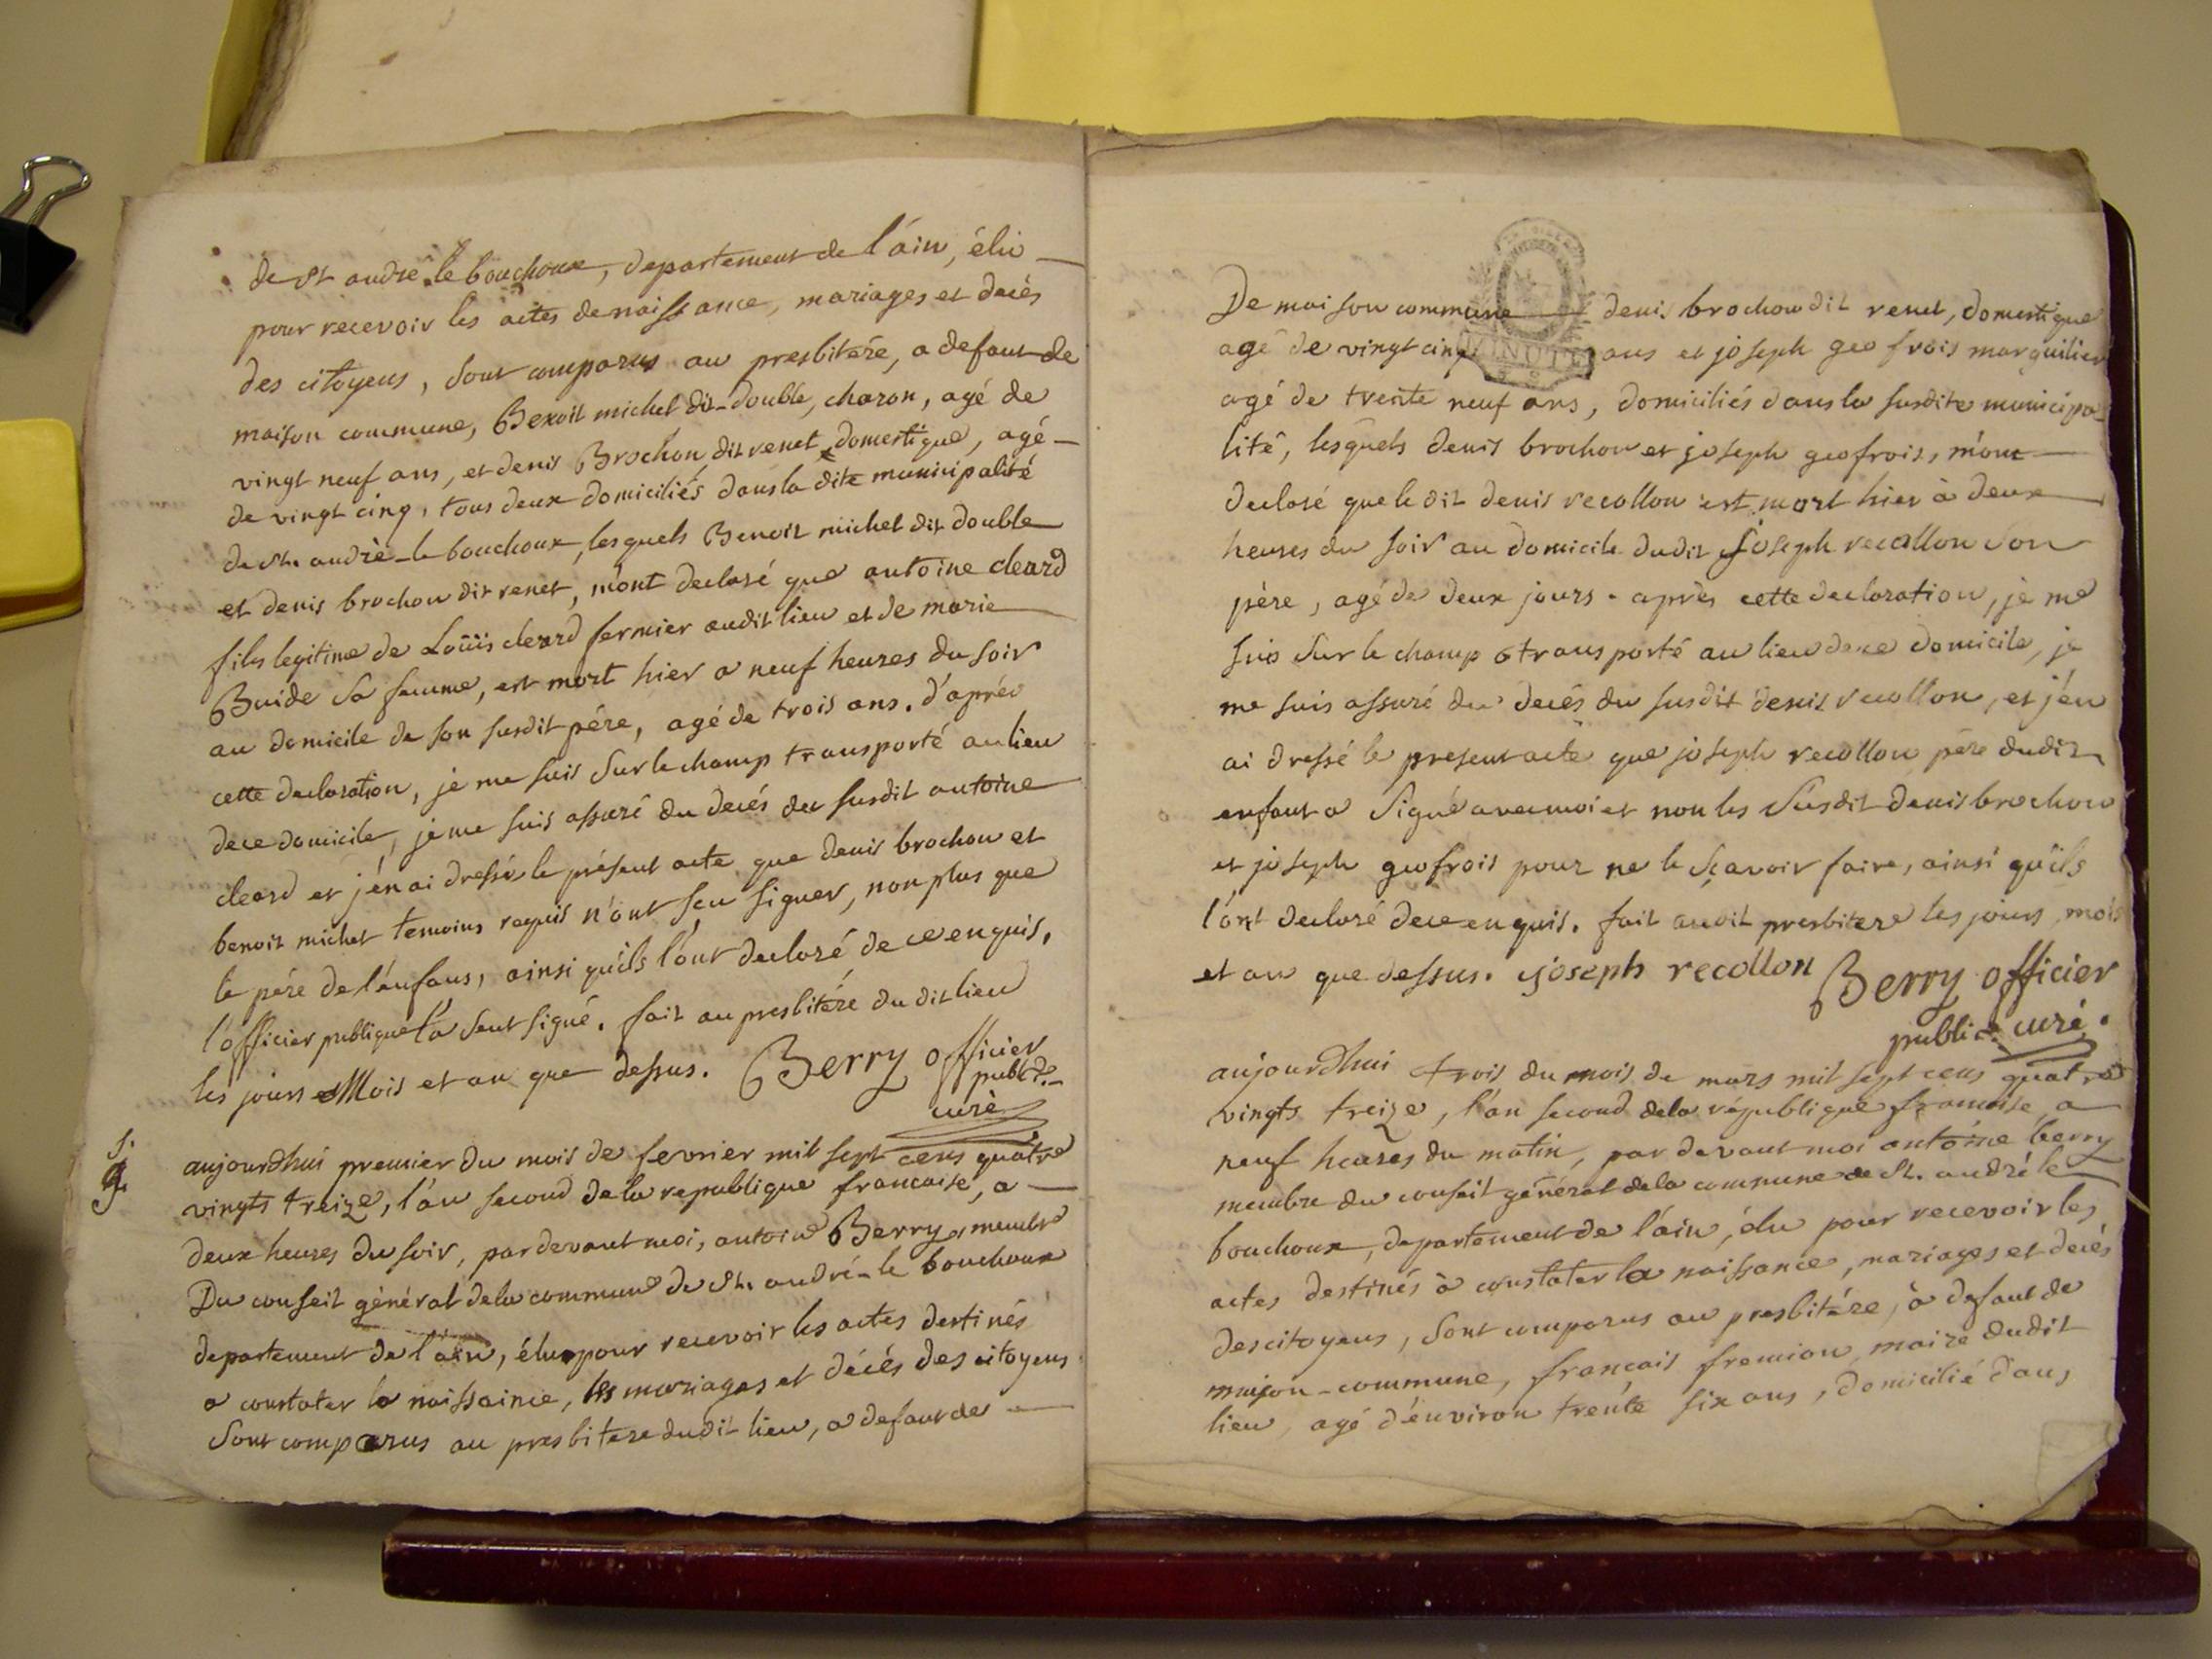 de St andré le bouchoux, departement de l'áin, élu
pour recevoir les actes de naissance, mariages et decès
des citoyens, sont comparus au presbitére, a defaut de
maison commune, Benoit michel dit double, charon, agé de
vingt neuf ans, et denis Brochon dit renet, domestique, agé
de vingt cinq, tous deux domiciliés dans la dite municipalité
de St. andrè le bouchoux, lesquels Benoit michel dit double
et denis brochon dit renet, m'ont declaré que antoine cleard
fils legitime de Loüis cleard fermier audit lieu et de marie
Buide sa femme, est mort hier a neuf heures du soir
au domicile de son susdit pére, agé de trois ans. d'aprés
cette declaration, je me suis sur le champ transporté au lieu
de ce domicile, je me suis assuré du decés du susdit antoine
cleard et j'en ai dressé le présent acte que denis brochon et
benoit michel temoins requis n'ont sçu signer, non plus que
le pére de l'enfans, ainsi qu'ils l'ont declaré de ce enquis,
l'officier publique l'a seul signé. fait au presbitére du dit lieu
les jours Mois et an que dessus. Berry officier
public
curè
5.
aujourdhui premier du mois de fevrier mil sept cens quatre
vingts treize, l'an second de la republique francaise, a
deux heures du soir, pardevant moi, antoine Berry membre
Du conseil général de la commune de St. andré le bouchoux
departement de l'ain, élu pour recevoir les actes destinés
a constater la naissaince, les mariages et décés des citoyens
sont comparus au presbitere dudit lieu, a defaut de
De maison commune denis brochon dit renet, domestique
agé de vingt cinq ans et joseph geofrois marguilier
MINUTE
agé de trente neuf ans, domiciliés dans la susdite municipa-
lité, lesquels denis brochon et joseph geofrois, m'ont
declaré que le dit denis recollon est mort hier à deux
heures du soir au domicile dudit Joseph recollon son
père, agé de deux jours. après cette declaration, je me
suis sur le champ transporté au lieu de ce domicile, je
me suis assuré du decés du susdit denis recollon, et j'en
ai dressé le present acte que joseph recollon père dudit
enfant a signé avec moi et non les susdit denis brochon
et joseph geofrois pour ne le sçavoir faire, ainsi qu'ils
l'ont declaré de ce enquis. fait audit presbitere les jours, mois
et an que dessus. joseph recollon Berry officier
public curé.
aujourdhui trois du mois de mars mil sept cens quatre
vingts treize, l'an second de la république francaise a
neuf heures du matin, par devant moi antoine berry
membre du conseil général de la commune de St. andré le
bouchoux, departement de l'áin, élu pour recevoir les
actes destinés à constater la naissance, mariages et decés
des citoyens, sont comparus au presbitére, à defaut de
maison-commune, francais fremion maire dudit
lieu, agé d'environ trente six ans, domicilié dans